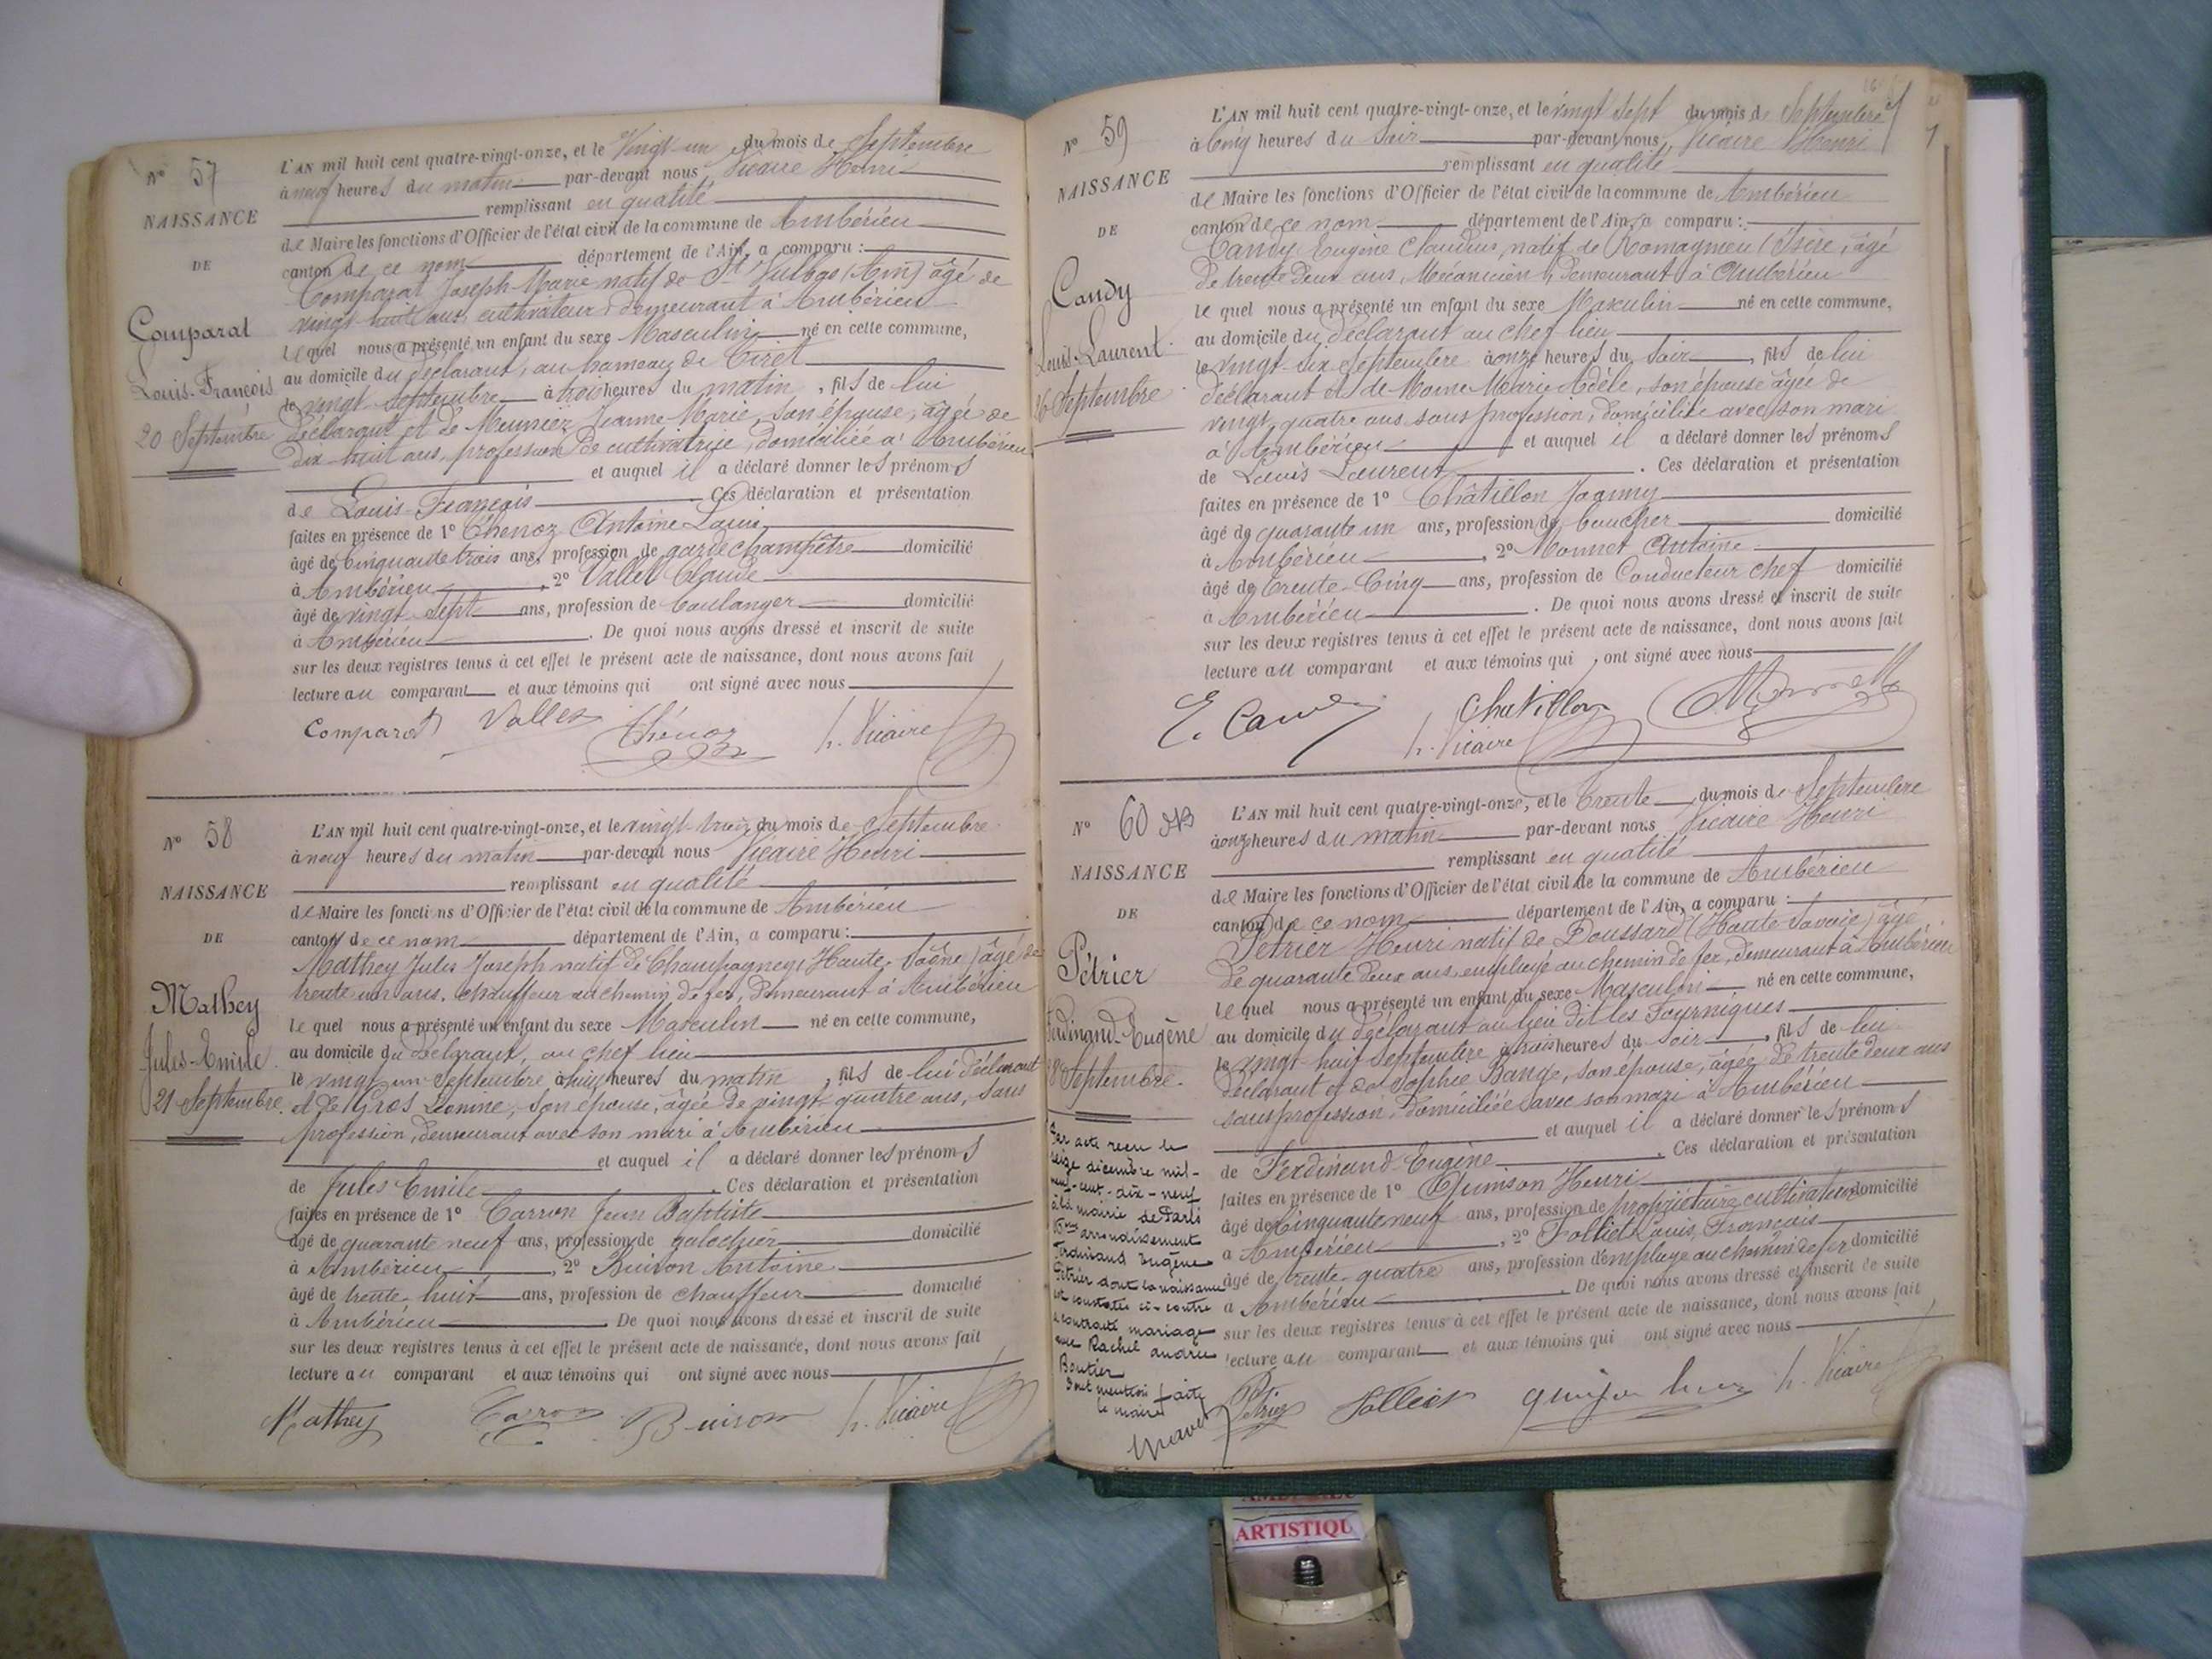 N° 57
NAISSANCE
DE
Comparat
Louis-François
20 Septembre
L'AN mil huit cent quatre-vingt-onze, et le Vingt-un du mois de Septembre
à neuf heures du matin par-devant nous Vicaire Henri
remplissant en qualité
de Maire les fonctions d'Officier de l'état civil de la commune de Ambérieu
canton de ce nom département de l'Ain, a comparu :
Comparat Joseph-Marie natif de St Vulbas (Ain) âgé de
vingt-huit ans, cultivateur, demeurant à Ambérieu
lequel nous a présenté un enfant du sexe Masculin né en cette commune,
au domicile du déclarant, au hameau de Tiret
le vingt Septembre à trois heures du matin, fils de lui
déclarant et de Meunier Jeanne-Marie, son épouse, âgée de
dix-huit ans, profession de cultivatrice, domiciliée à Ambérieu
et auquel il a déclaré donner les prénoms
de Louis-François Ces déclaration et présentation
faites en présence de 1° Thenoz Antoine Louis
âgé de Cinquante trois ans, profession de garde champêtre domicilié
à Ambérieu, 2° Vallet Claude
âgé de vingt-sept ans, profession de boulanger domicilié
à Ambérieu. De quoi nous avons dressé et inscrit de suite
sur les deux registres tenus à cet effet le présent acte de naissance, dont nous avons fait
lecture au comparant et aux témoins qui ont signé avec nous
Comparat Vallet Thénoz h. Vicaire
N° 58
NAISSANCE
DE
Mathey
Jules-Emile
21 Septembre
L'AN mil huit cent quatre-vingt-onze, et le vingt-trois du mois de Septembre
à neuf heures du matin par-devant nous Vicaire Henri
remplissant en qualité
de Maire les fonctions d'Officier de l'état civil de la commune de Ambérieu
canton de ce nom département de l'Ain, a comparu :
Mathey Jules Joseph natif de Champagney (Haute-Saône) âgé de
trente un ans, chauffeur au chemin de fer, demeurant à Ambérieu
lequel nous a présenté un enfant du sexe Masculin né en cette commune,
au domicile du déclarant, au chef lieu
le vingt un Septembre à huit heures du matin, fils de lui déclarant
et de Gros Léonine, son épouse, âgée de vingt-quatre ans, sans
profession, demeurant avec son mari à Ambérieu
et auquel il a déclaré donner les prénoms
de Jules Emile Ces déclaration et présentation
faites en présence de 1° Carron Jean Baptiste
âgé de quarante neuf ans, profession de galochier domicilié
à Ambérieu, 2° Buison Antoine
âgé de trente-huit ans, profession de chauffeur domicilié
à Ambérieu De quoi nous avons dressé et inscrit de suite
sur les deux registres tenus à cet effet le présent acte de naissance, dont nous avons fait
lecture au comparant et aux témoins qui ont signé avec nous
Mathey Carron Buison h. Vicaire
N° 59
NAISSANCE
DE
Candy
Louis-Laurent
26 Septembre
L'AN mil huit cent quatre-vingt-onze, et le vingt sept du mois de Septembre
à Cinq heures du Soir par-devant nous, Vicaire Henri
remplissant en qualité
de Maire les fonctions d'Officier de l'état civil de la commune de Ambérieu
canton de ce nom département de l'Ain, a comparu :
Candy Eugène Claudius, natif de Romagnieu (Isère) âgé
de trente deux ans, Mécanicien, demeurant à Ambérieu
lequel nous a présenté un enfant du sexe Masculin né en cette commune,
au domicile du déclarant au chef lieu
le vingt-six Septembre à onze heures du Soir, fils de lui
déclarant et de Moine Marie Adèle, son épouse âgée de
vingt quatre ans sans profession, domiciliée avec son mari
à Ambérieu et auquel il a déclaré donner les prénoms
de Louis Laurent. Ces déclaration et présentation
faites en présence de 1° Châtillon Joanny
âgé de quarante un ans, profession de boucher domicilié
à Ambérieu, 2° Monnet Antoine
âgé de Trente-Cinq ans, profession de Conducteur chef domicilié
à Ambérieu. De quoi nous avons dressé et inscrit de suite
sur les deux registres tenus à cet effet le présent acte de naissance, dont nous avons fait
lecture au comparant et aux témoins qui ont signé avec nous
E. Candy Chatillon Monnet
h. Vicaire
N° 60
NAISSANCE
DE
Pétrier
Ferdinand-Eugène
28 Septembre
L'AN mil huit cent quatre-vingt-onze, et le Trente du mois de Septembre
à onze heures du matin par-devant nous Vicaire Henri
remplissant en qualité
de Maire les fonctions d'Officier de l'état civil de la commune de Ambérieu
canton de ce nom département de l'Ain, a comparu :
Pétrier Henri natif de Doussard (Haute-Savoie) âgé
de quarante deux ans, employé au chemin de fer, demeurant à Ambérieu
lequel nous a présenté un enfant du sexe Masculin né en cette commune,
au domicile du déclarant au lieu dit les Fourniques
le vingt-huit Septembre à trois heures du soir, fils de lui
déclarant et de Sophie Bange, son épouse, âgée de trente deux ans
sans profession, domiciliée avec son mari à Ambérieu
et auquel il a déclaré donner les prénoms
de Ferdinand-Eugène. Ces déclaration et présentation
faites en présence de 1° Quinson Henri
âgé de Cinquante neuf ans, profession de propriétaire cultivateur domicilié
à Ambérieu, 2° Folliet Louis, François
âgé de trente-quatre ans, profession d'employé au chemin de fer domicilié
à Ambérieu. De quoi nous avons dressé et inscrit de suite
sur les deux registres tenus à cet effet le présent acte de naissance, dont nous avons fait
lecture au comparant et aux témoins qui ont signé avec nous
Pétrier Folliet h. Vicaire
Par acte reçu le
seize décembre mil-
neuf-cent-dix-neuf
à la mairie de Paris
arrondissement
Ferdinand Eugène
Pétrier dont la naissance
est constatée ci-contre
a contracté mariage
avec Rachel Andrée
Boutier
Dont mention faite
le maire
ARTISTIQU